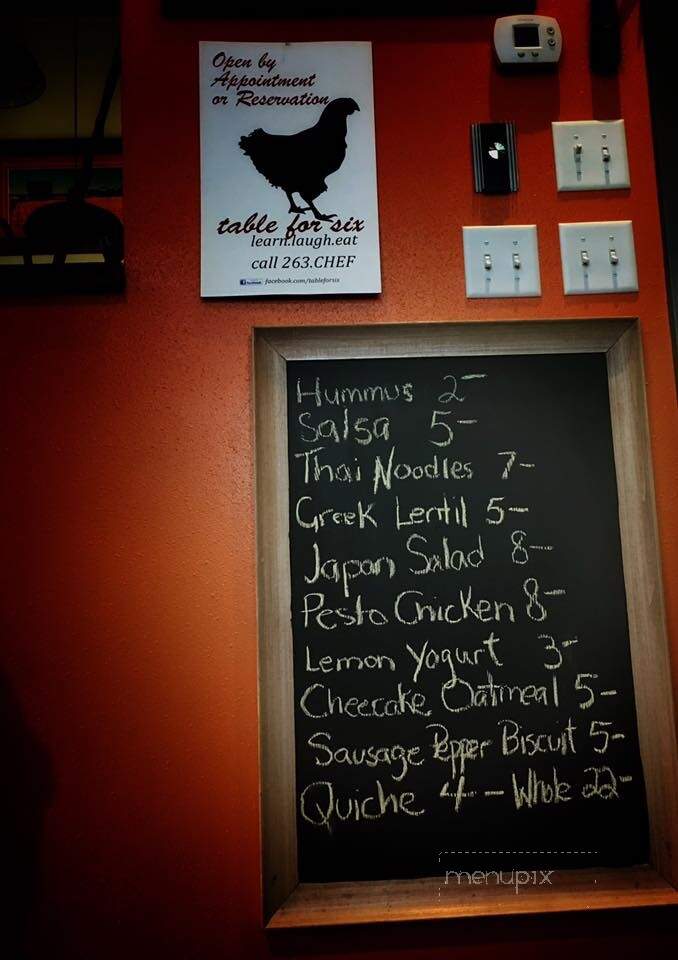 Open by
Appointment
or Reservation
table for six
learn.laugh.eat
call 263.CHEF
facebook.com/tableforsix
Hummus 2-
Salsa 5-
Thai Noodles 7-
Greek Lentil 5-
Japan Salad 8-
Pesto Chicken 8-
Lemon Yogurt 3-
Cheecake Oatmeal 5-
Sausage Pepper Biscuit 5-
Quiche 4 - Whole 22-
menupix